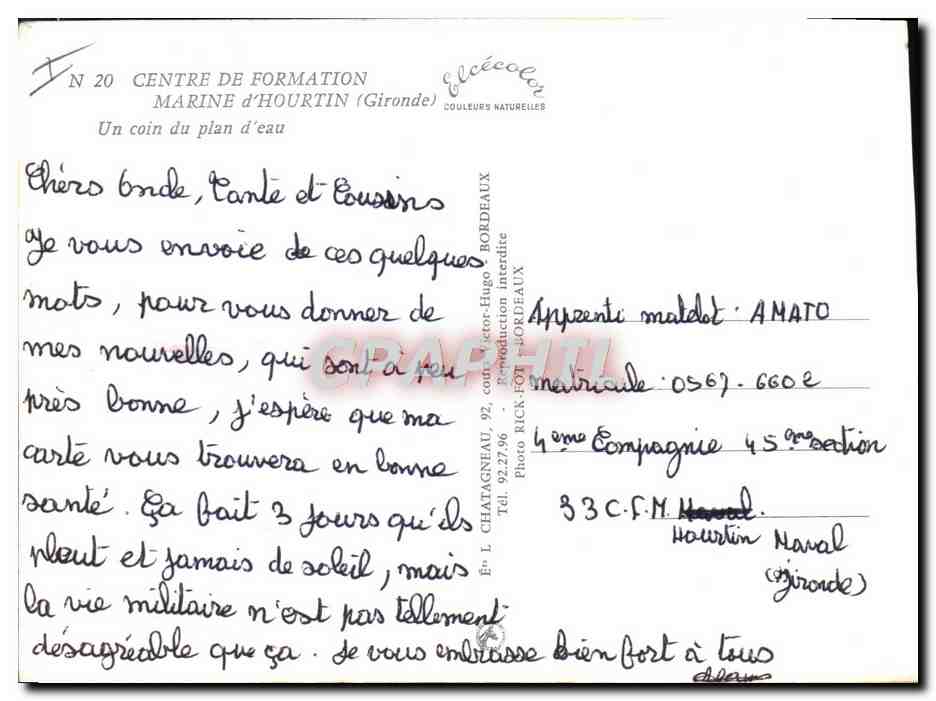 N 20 CENTRE DE FORMATION
MARINE d'HOURTIN (Gironde)
Un coin du plan d'eau
Elcécolor
COULEURS NATURELLES
Chérs Oncle, Tante et Cousins
Je vous envoie de ces quelques
mots, pour vous donner de
mes nouvelles, qui sont à peu
près bonne, j'espère que ma
carte vous trouvera en bonne
santé. Ça fait 3 jours qu'ils
pleut et jamais de soleil, mais
la vie militaire n'est pas tellement
désagréable que ça. Je vous embrasse bien fort à tous
Éts L. CHATAGNEAU, 92, cours Victor-Hugo - BORDEAUX
Tél. 92.27.96 - Reproduction interdite
Photo RICK-FOT - BORDEAUX
Apprenti matelot : AMATO
matricule : 0567-6602
4ème Compagnie 45ème section
33 C.F.M. Naval.
Hourtin Naval
(Gironde)
CPAPHIL